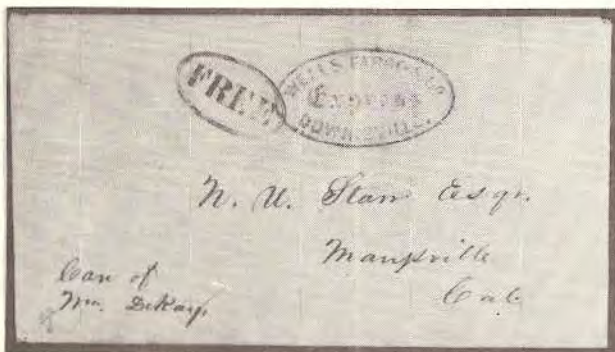 FREE
WELLS, FARGO & CO.
Express
DOWNIEVILLE.
N. U. Starr Esqr.
Marysville
Cal.
Care of
Wm. DeKay.